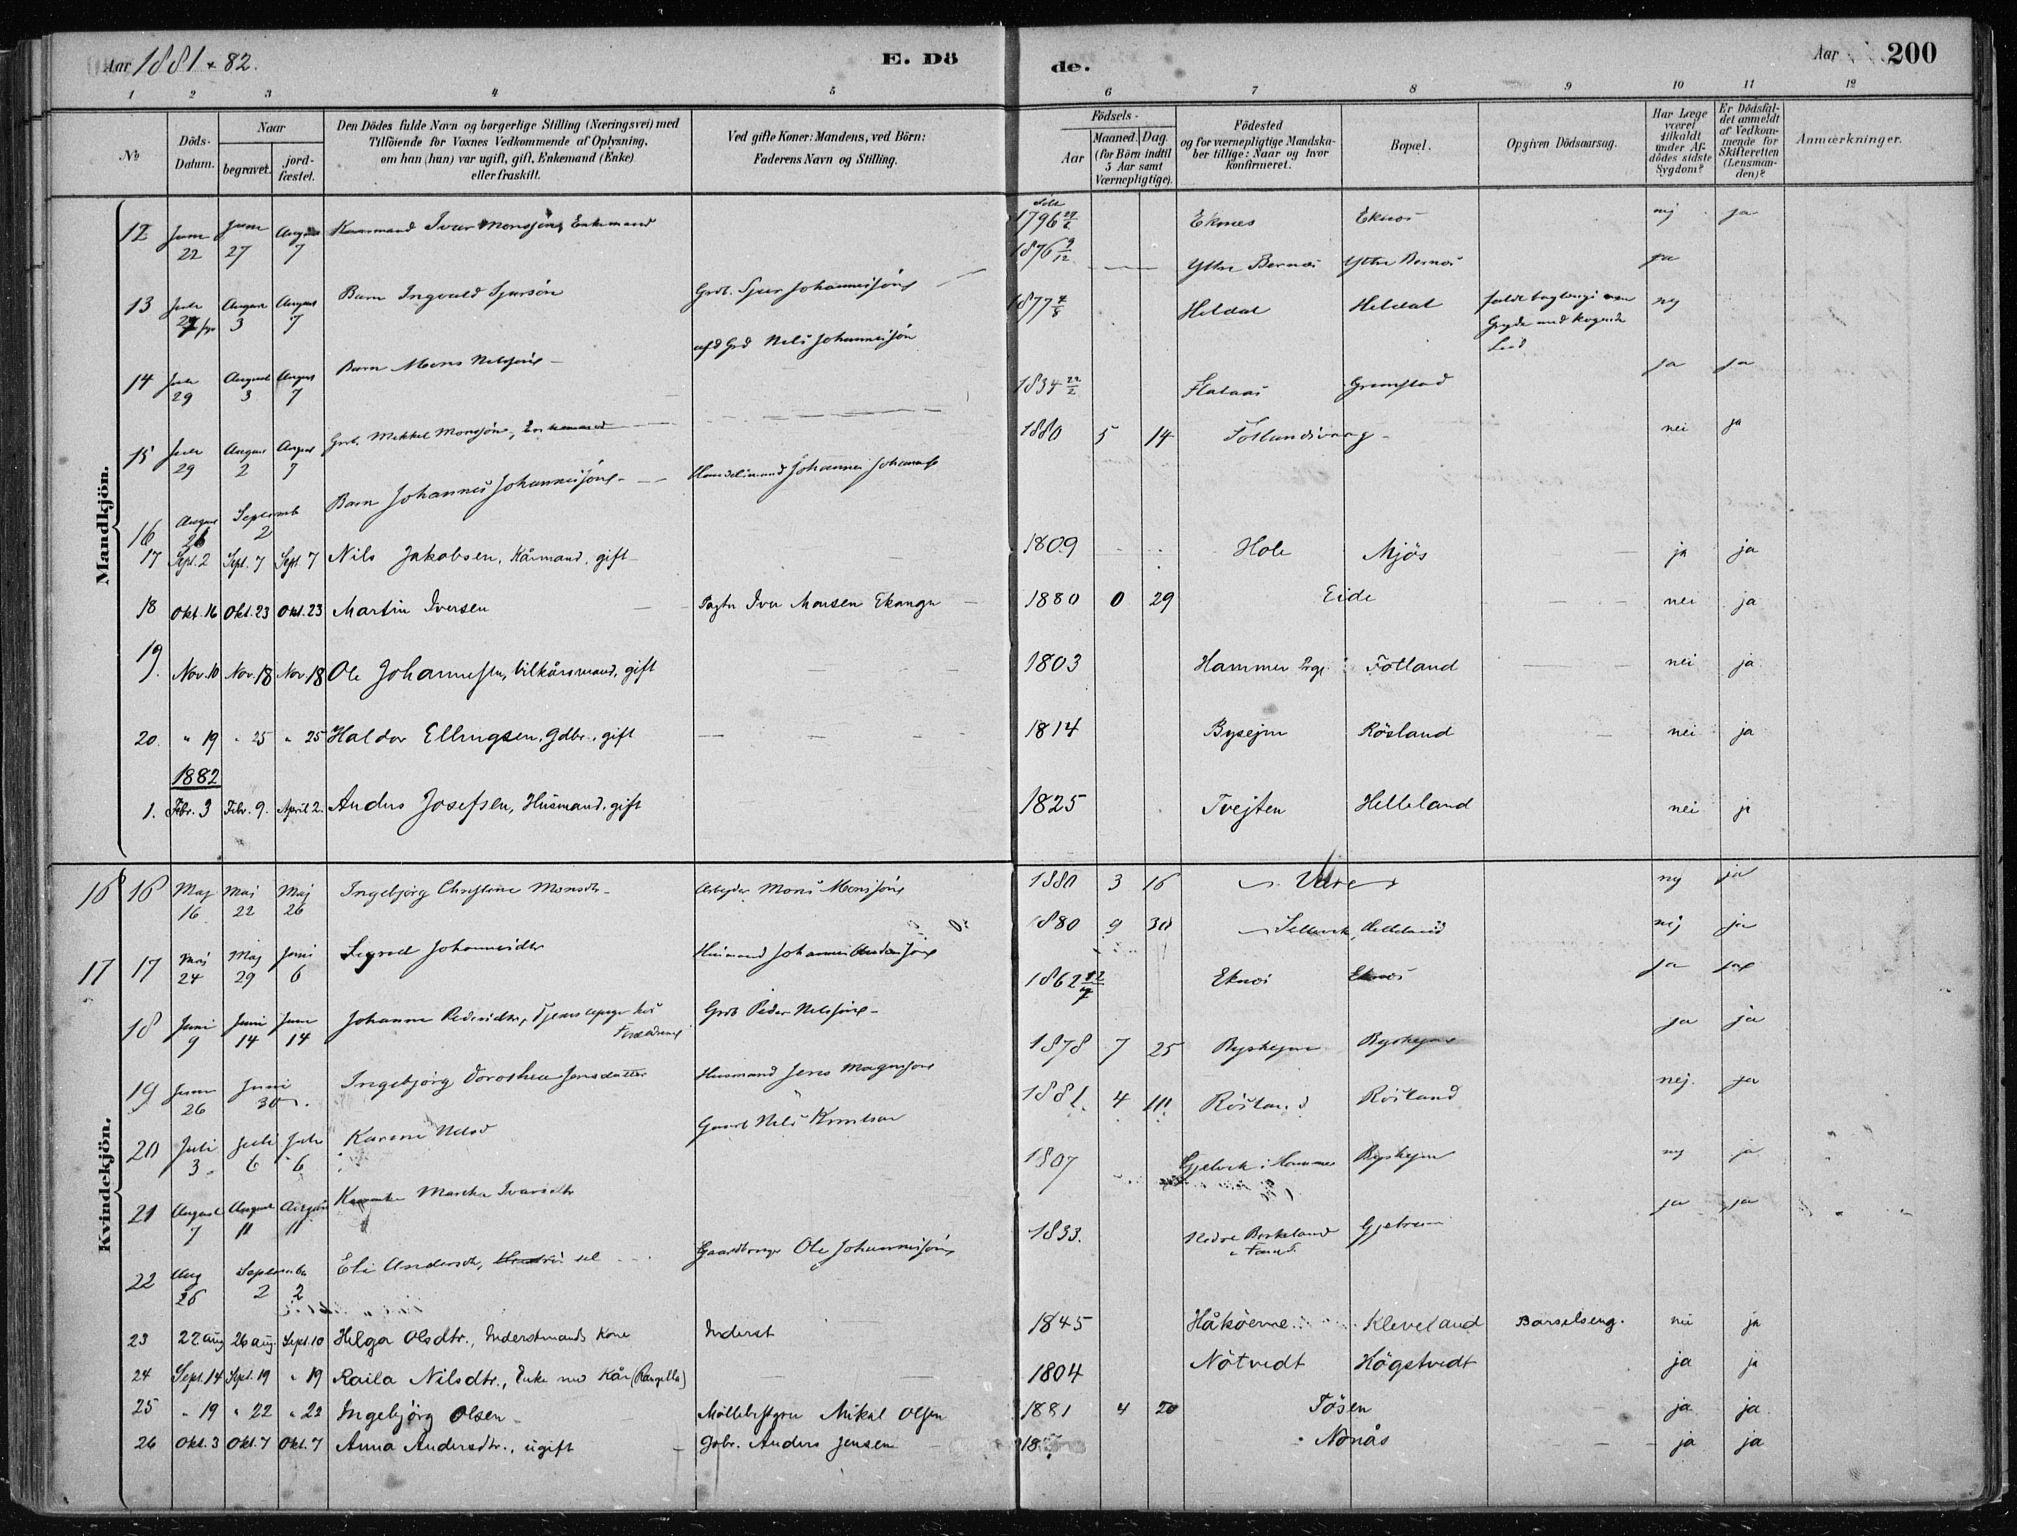 Aar 1881 & 82.
E. Dö
de.
Aar
200
1 2 3 4 5 6 7 8 9 10 11 12
No
Döds-
Datum.
Naar
begravet.
jord-
fæstet.
Den Dödes fulde Navn og borgerlige Stilling (Næringsvei) med
Tilföiende for Voxnes Vedkommende af Oplysning,
om han (hun) var ugift, gift, Enkemand (Enke)
eller fraskilt.
Ved gifte Koner: Mandens, ved Börn:
Faderens Navn og Stilling.
Födsels-
Aar
Maaned. Dag.
(for Börn indtil
5 Aar samt
Værnepligtige).
Födested
og for værnepligtige Mandska-
ber tillige: Naar og hvor
konfirmeret.
Bopæl.
Opgiven Dödsaarsag.
Har Læge
været
tilkaldt
under Af-
dödes sidste
Sygdom?
Er Dödsfal-
det anmeldt
af Vedkom-
mende for
Skifteretten
(Lensman-
den)?
Anmærkninger.
Mandkjön.
12 Juni 22 Juni 27 August 7 Kaarmand Ivar Monssön, Enkemand 1796 Eknes Eknes nej ja
13 Juli August 3 August 7 Barn Ingvald Sjursön Grdb. Sjur Johannessöns 1876 9/12 Yttre Bernes Yttre Bernes ja
14 Juli 29 August 3 August 7 Barn Mons Nelssöns afd Grd Nils Johannessön 1877 4/8 Heldal Heldal faldt baglengs Gryde med kogende ny
15 Juli 29 August 2 August 7 Grb. Mikkel Monssöns, Enkemand 1834 22/2 Flataas Grimstad ja ja
16 August September 2 Barn Johannes Johannessöns Handelsmand Johannes Johanness 1880 5 14 Fotlandsvaag nei ja
17 Sept. 2 Sept. 7 Sept. 7 Nils Jakobsen, Kårmand, gift 1809 Hole Mjös ja ja
18 Okt. 16 Okt. 23 Okt. 23 Martin Iversen Iver Monsen Ekanger 1880 0 29 Eide nei ja
19. Nov. 10 Nov. 18 Nov. 18 Ole Johannessen, Vilkårsmand, gift 1803 Hammer Fotland nei ja
20. " 19 " 25 " 25 Haldor Ellingsen, Gdbr., gift 1814 Bysejm Rösland nei ja
1882
1. Febr. 3 Febr. 9. April 2. Anders Josefsen, Husmand, gift 1825 Tvejten Helleland nei ja
Kvindekjön.
16 16 Maj 16 Mai 22 Maj 26 Ingebjörg Christine Monsdtr Arbejder Mons Monssöns 1880 3 16 ny ja
17 17 Mai 24 Maj 29 Juni 6 Sigrid Johannesdtr Husmand Johannes 1880 9 30 Helleland nej ja
18 Juni 9 Juni 14 Juni 14 Johanne Pedersdtr, hos Forældrene Grdb Peder Nelssöns 1862 Eknes Eknes ja ja
19 Juni 26 Juni 30 Ingebjörg Dorothea Jensdatter Husmand Jens Magnssöns 1878 7 25 Byshejm Byshejm ja ja
20 Juli 3 Juli 6 Juli 6 Karen Nelsd Gaardb Nils Knutson 1881. 4 11 Rösland Rösland nej. ja
21 August 7 August 11 August 11 Martha Ivarsdtr 1807 Gjelvik i Hammer Byshejm ny ja
22 Aug 26 September 2 2 Eli Andersdtr, Gaardbruger Ole Johannessöns 1833. Birkeland Gjetrem ja ja
23 22 aug 26 aug. Sept. 10 Helga Olsdtr., Inderstmands Kone Inderst 1845 Håköerne Kleveland Barselseng. nei ja
24 Sept. 14 Sept. 19 " 19 Raila Nilsdtr., Enke med Kår (Rangella) 1804 Nötvedt Högstvedt ja ja
25 " 19 " 22 " 22 Ingebjörg Olsen Möllebestyrer Mikal Olsen 1881 4 20 Tösen ja ja
26 Okt. 3 Okt. 7 Okt. 7 Anna Andersdtr., ugift Gbr. Anders Jensen 18 Nonås ja ja